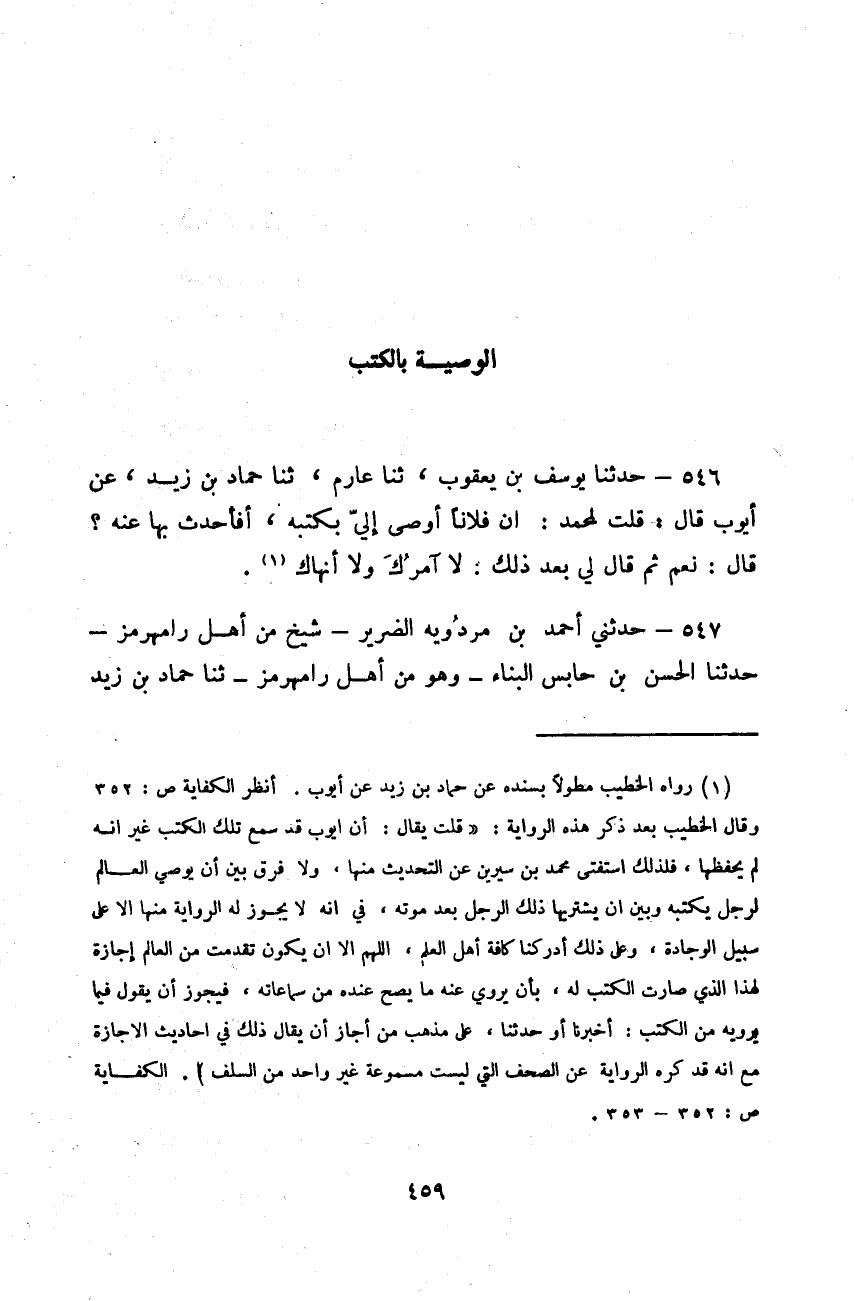 الوصيـــة بالكتب
٥٤٦ – حدثنا يوسف بن يعقوب ، ثنا عارم ، ثنا حماد بن زيـــد ، عن
أيوب قال : قلت لمحمد : ان فلاناً أوصى إليّ بكتبه ، أفأحدث بها عنه ؟
قال : نعم ثم قال لي بعد ذلك : لا آمرُكَ ولا أنهاك (١) .
٥٤٧ – حدثني أحمد بن مردُويه الضرير – شيخ من أهـل رامهرمز –
حدثنا الحسن بن حابس البناء – وهو من أهـل رامهرمز – ثنا حماد بن زيد
(١) رواه الخطيب مطولاً بسنده عن حماد بن زيد عن أيوب . أنظر الكفاية ص : ٣٥٢
وقال الخطيب بعد ذكر هذه الرواية : « قلت يقال : أن ايوب قد سمع تلك الكتب غير انـه
لم يحفظها ، فلذلك استفتى محمد بن سيرين عن التحديث منها ، ولا فرق بين أن يوصي العـــالم
لرجل بكتبه وبين ان يشتريها ذلك الرجل بعد موته ، في انه لا يجـوز له الرواية منها الا على
سبيل الوجادة ، وعلى ذلك أدركنا كافة أهل العلم ، اللهم الا ان يكون تقدمت من العالم إجازة
لهذا الذي صارت الكتب له ، بأن يروي عنه ما يصح عنده من سماعاته ، فيجوز أن يقول فيما
يرويه من الكتب : أخبرنا أو حدثنا ، على مذهب من أجاز أن يقال ذلك في احاديث الاجازة
مع انه قد كره الرواية عن الصحف التي ليست مسموعة غير واحد من السلف ) . الكفـــاية
ص : ٣٥٢ – ٣٥٣ .
٤٥٩